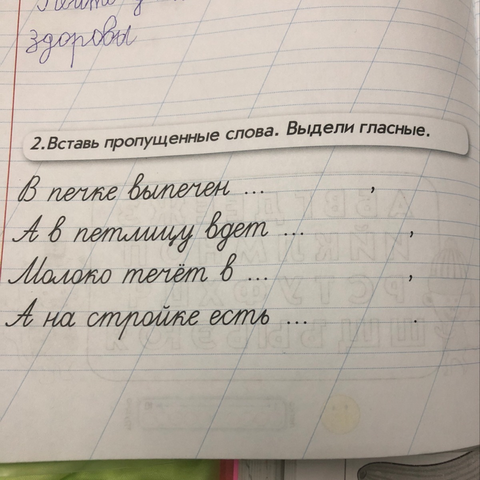 здоровы
2.Вставь пропущенные слова. Выдели гласные.
В печке выпечен ... ,
А в петлицу вдет ... ,
Молоко течёт в ... ,
А на стройке есть ... .